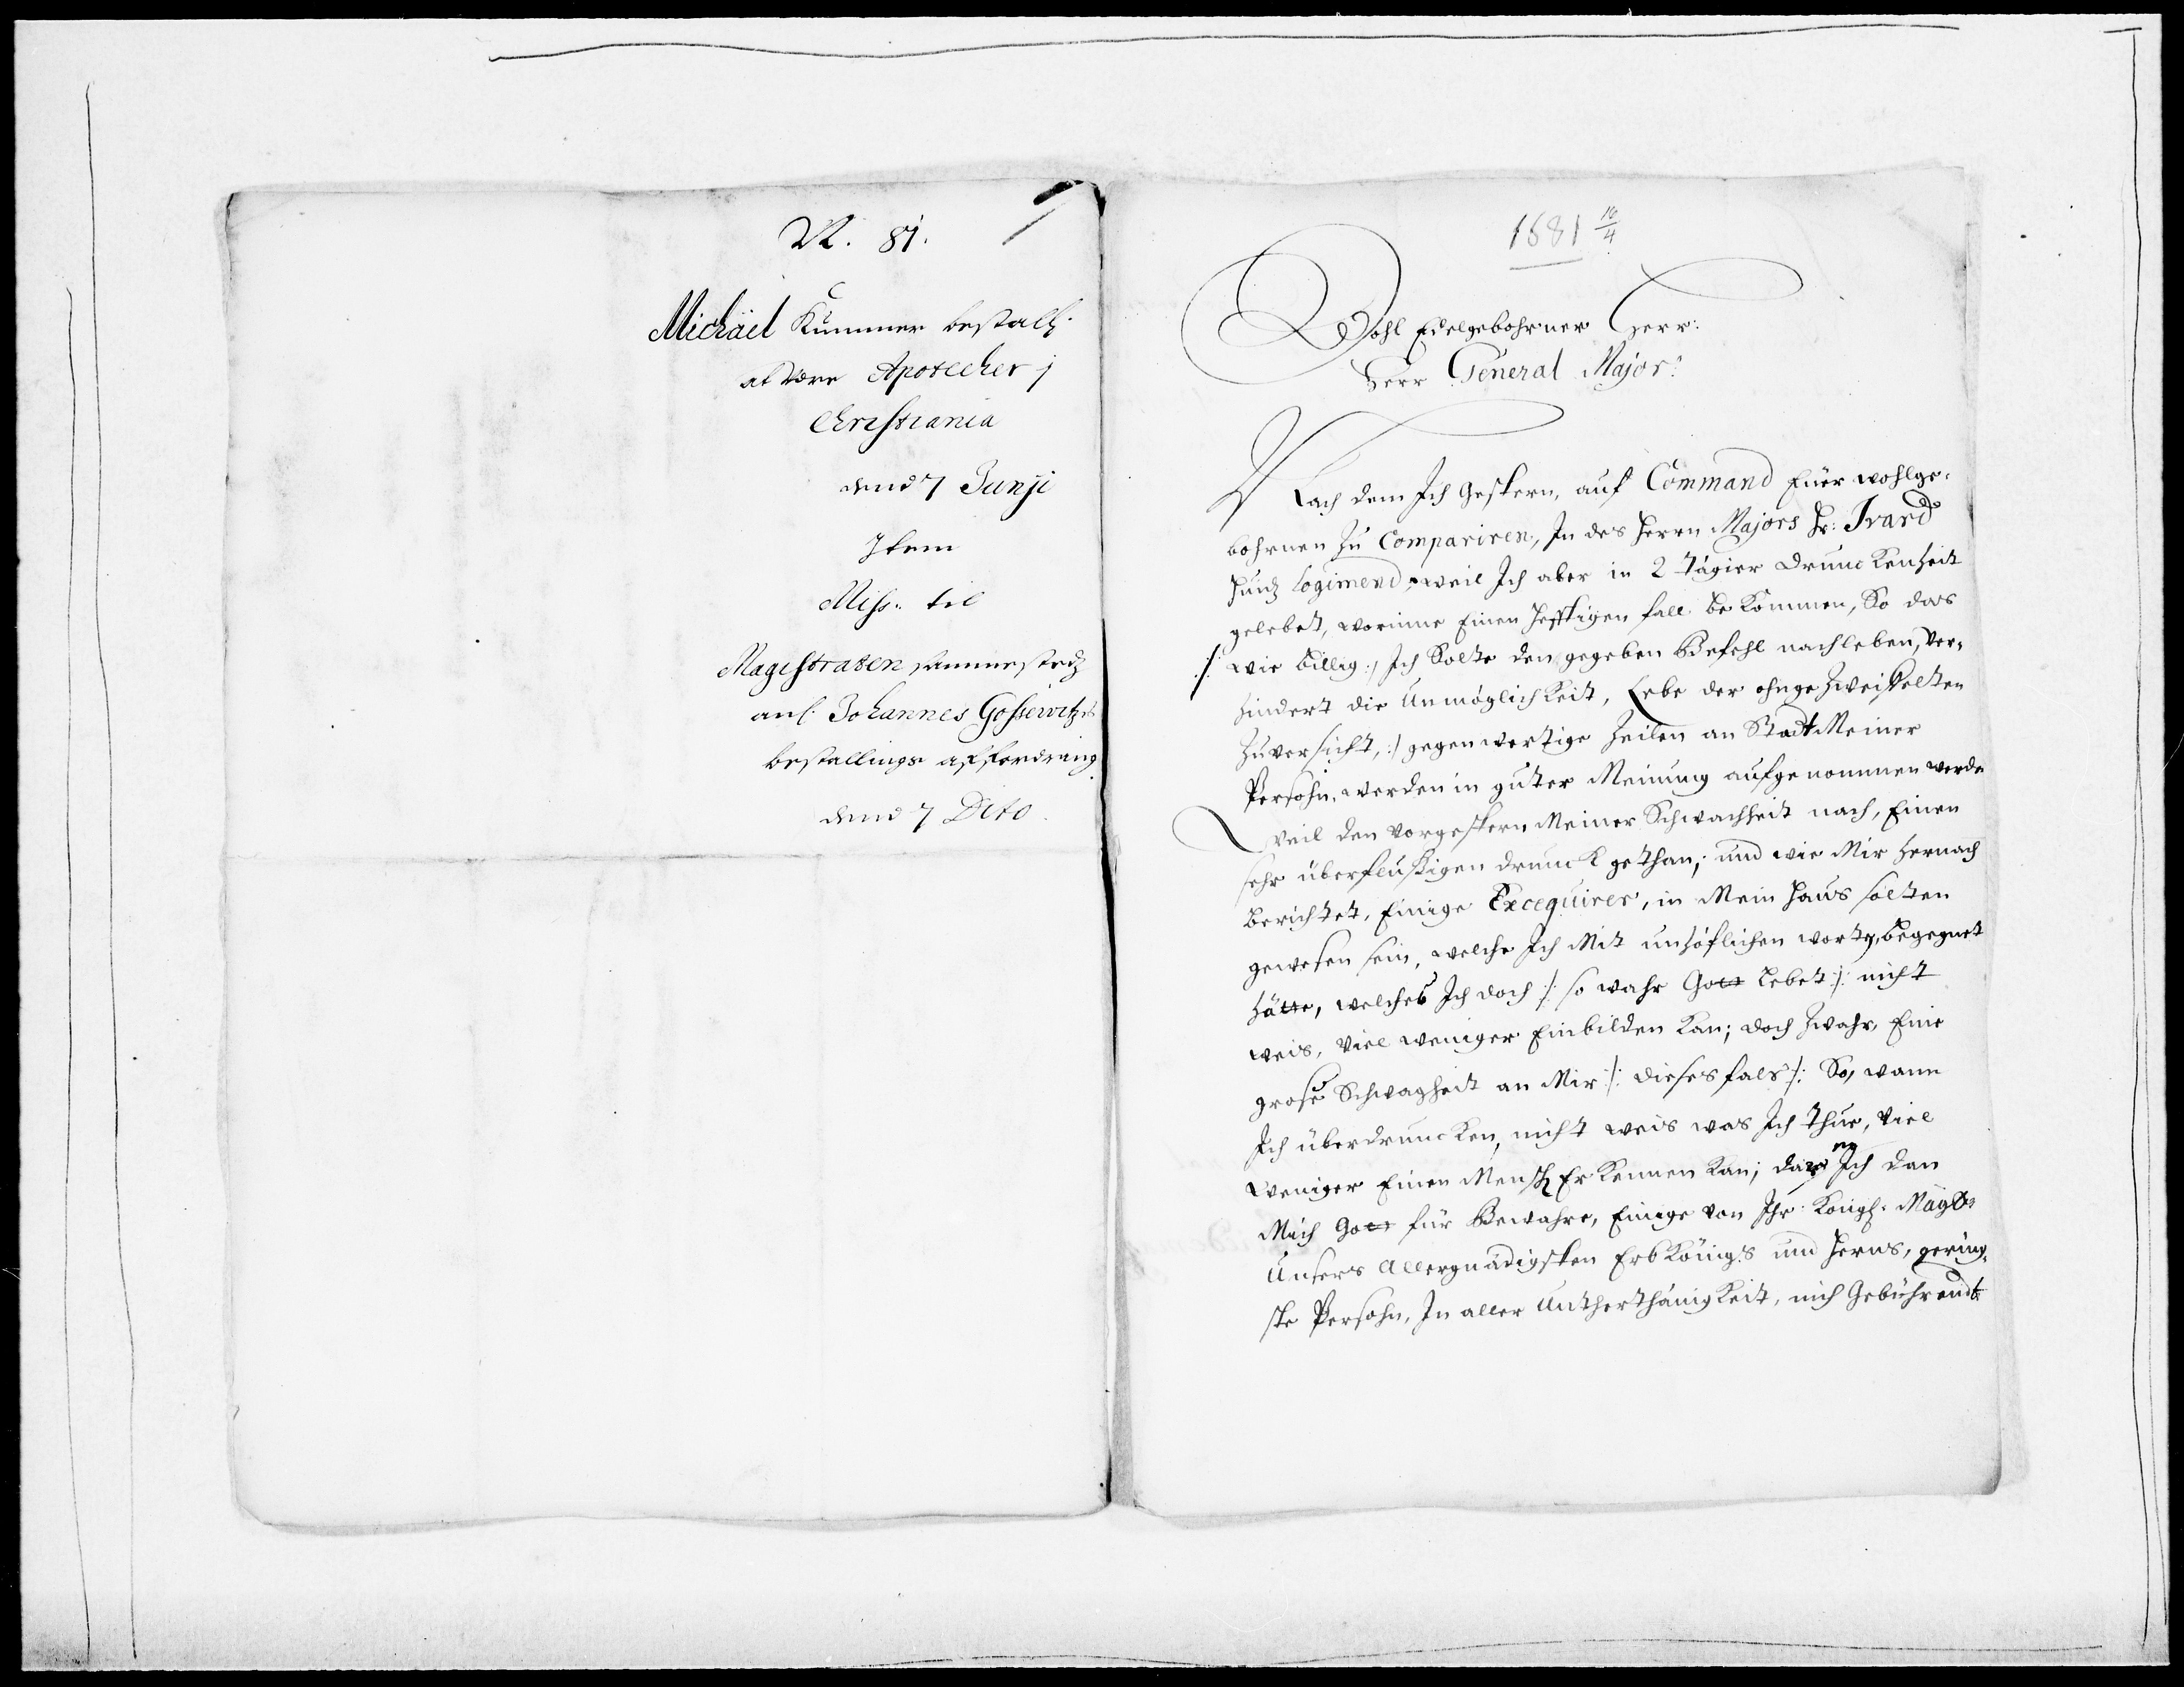 N. 81.
Michäel Kummer bestalh:
at være Apotecher j
Christiania
dend 7 Junji
Item
Miss: til
Magistraten sammestedz
anl. Johannes Gossewitz
bestallings affordring
dend 7 Dito
1681 10/4
Wohl Edelgebohrner Herr:
Herr General Major:
Nach dem Ich Gestern, auf Command Euer wohlge-
bohrnen Zu Compariren, In des Herrn Majors Hr: Ivard
Hund Logimend, weil Ich aber in 2 tägier drunckenheit
gelebet, worinne Einen Hefftigen fall bekommen, So das
/: wie billig :/ Ich Solte den gegeben Befehl nachleben, ver-
hindert die Unmöglichkeit, Lebe der ohngezweiffelten
Zuversicht, :/ gegenwertige Zeilen an Stadt Meiner
Persohn, werden in guter Meinung aufgenommen werde
Weil den vorgestern Meiner Schwachheit nach, Einen
sehr überflüssigen drunck gethan, und wie Mir hernach
berichtet, Einige Excequirer, in Mein Haus solten
gewesen sein, welche Ich Mit unhöflichen wortt, begegnet
hätte, welches Ich doch /: so wahr Gott Lebet :/ nicht
weis, viel weniger Einbilden kan; doch Zwahr, Eine
grose Schwagheit an Mir /: diesesfals :/ So, wann
Ich überdruncken, nicht weis was Ich thue, viel
weniger Einen Mensch Erkennen kan; Ich dan
Mich Gott für Bewahre, Einige von Ihr: Königl: Mäyt:
Unsers Allergnädigsten Erb Königs und Herns, gering-
ste Persohn, In aller Untherthänigkeit, nich Gebührendt